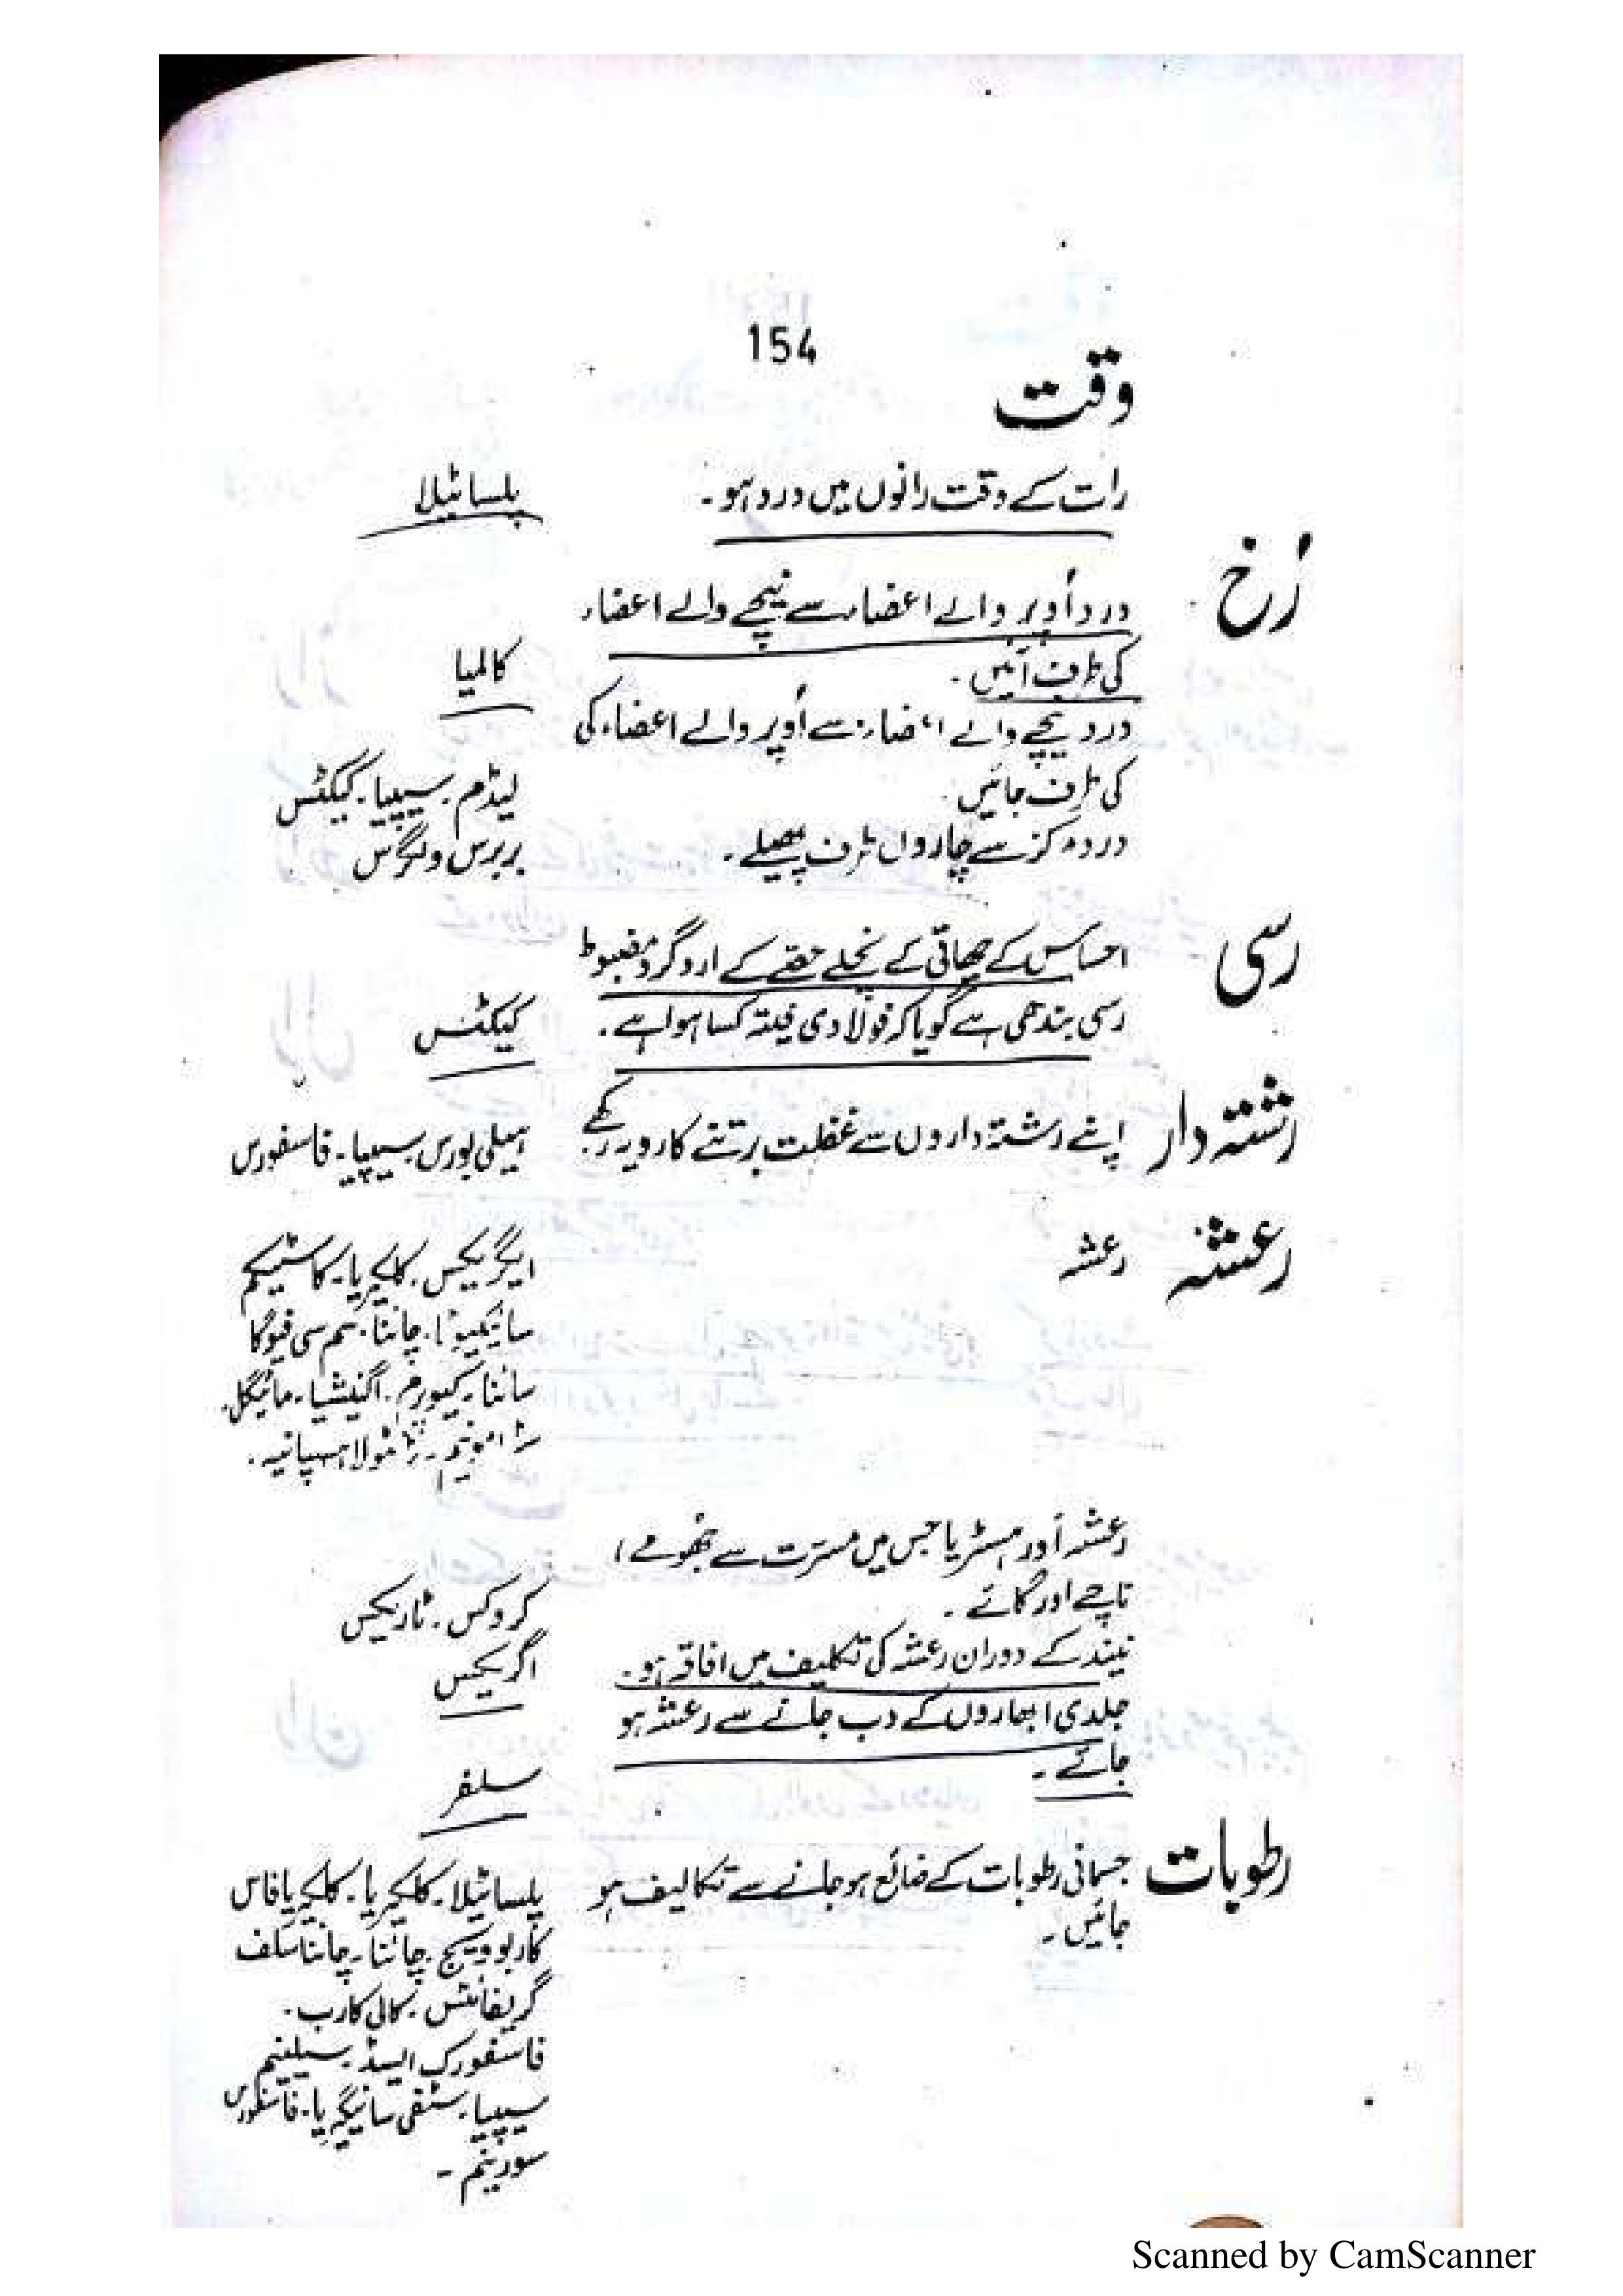 154
وقت
رات کے وقت رانوں میں درد ہو۔ پلساٹیلا
رُخ درد اُوپر والے اعضاء سے نیچے والے اعضاء
کی طرف آئیں۔ کالمیا
درد نیچے والے اعضاء سے اُوپر والے اعضاء کی
کی طرف جائیں۔ لیڈم۔ سیپیا۔ کیکٹس
درد مرکز سے چاروں طرف پھیلے۔ بربرس ولگرس
رسی احساس کے چھاتی کے نچلے حصّے کے اردگرد مضبوط
رسی بندھی ہے گویا کہ فولادی فیتہ کسا ہوا ہے۔ کیکٹس
رشتہ دار اپنے رشتہ داروں سے غفلت برتنے کا رویہ رکھے ہیلی بورس سیپیا۔ فاسفورس
رعشہ رعشہ ایگریکس۔ کلکیریا۔ کاسٹیکم
سائیکیوٹا۔ چائنا۔ سم سی فیوگا
سائنا۔ کیوپرم۔ اگنیشیا۔ مائیگل۔
سٹرامونیم۔ ٹرنٹولا ہسپانیہ۔
رعشہ اَور ہسٹریا جس میں مسرّت سے جھُومے،
ناچے اور گائے۔ کروکس۔ ٹاریکس
نیند کے دوران رعشہ کی تکلیف میں افاقہ ہو۔ اگریکس
جلدی ابھاروں کے دب جانے سے رعشہ ہو
جائے۔ سلفر
رطوبات جسمانی رطوبات کے ضائع ہو جانے سے تکالیف ہو پلساٹیلا۔ کلکیریا۔ کلکیریا فاس
جائیں۔ کاربوویج۔ چائنا۔ چائنا سلف
گریفائٹس۔ کالی کارب۔
فاسفورک ایسڈ۔ سیلینیم
سیپیا۔ سٹفی سائیگریا۔ فاسفورس
سورینم۔
Scanned by CamScanner